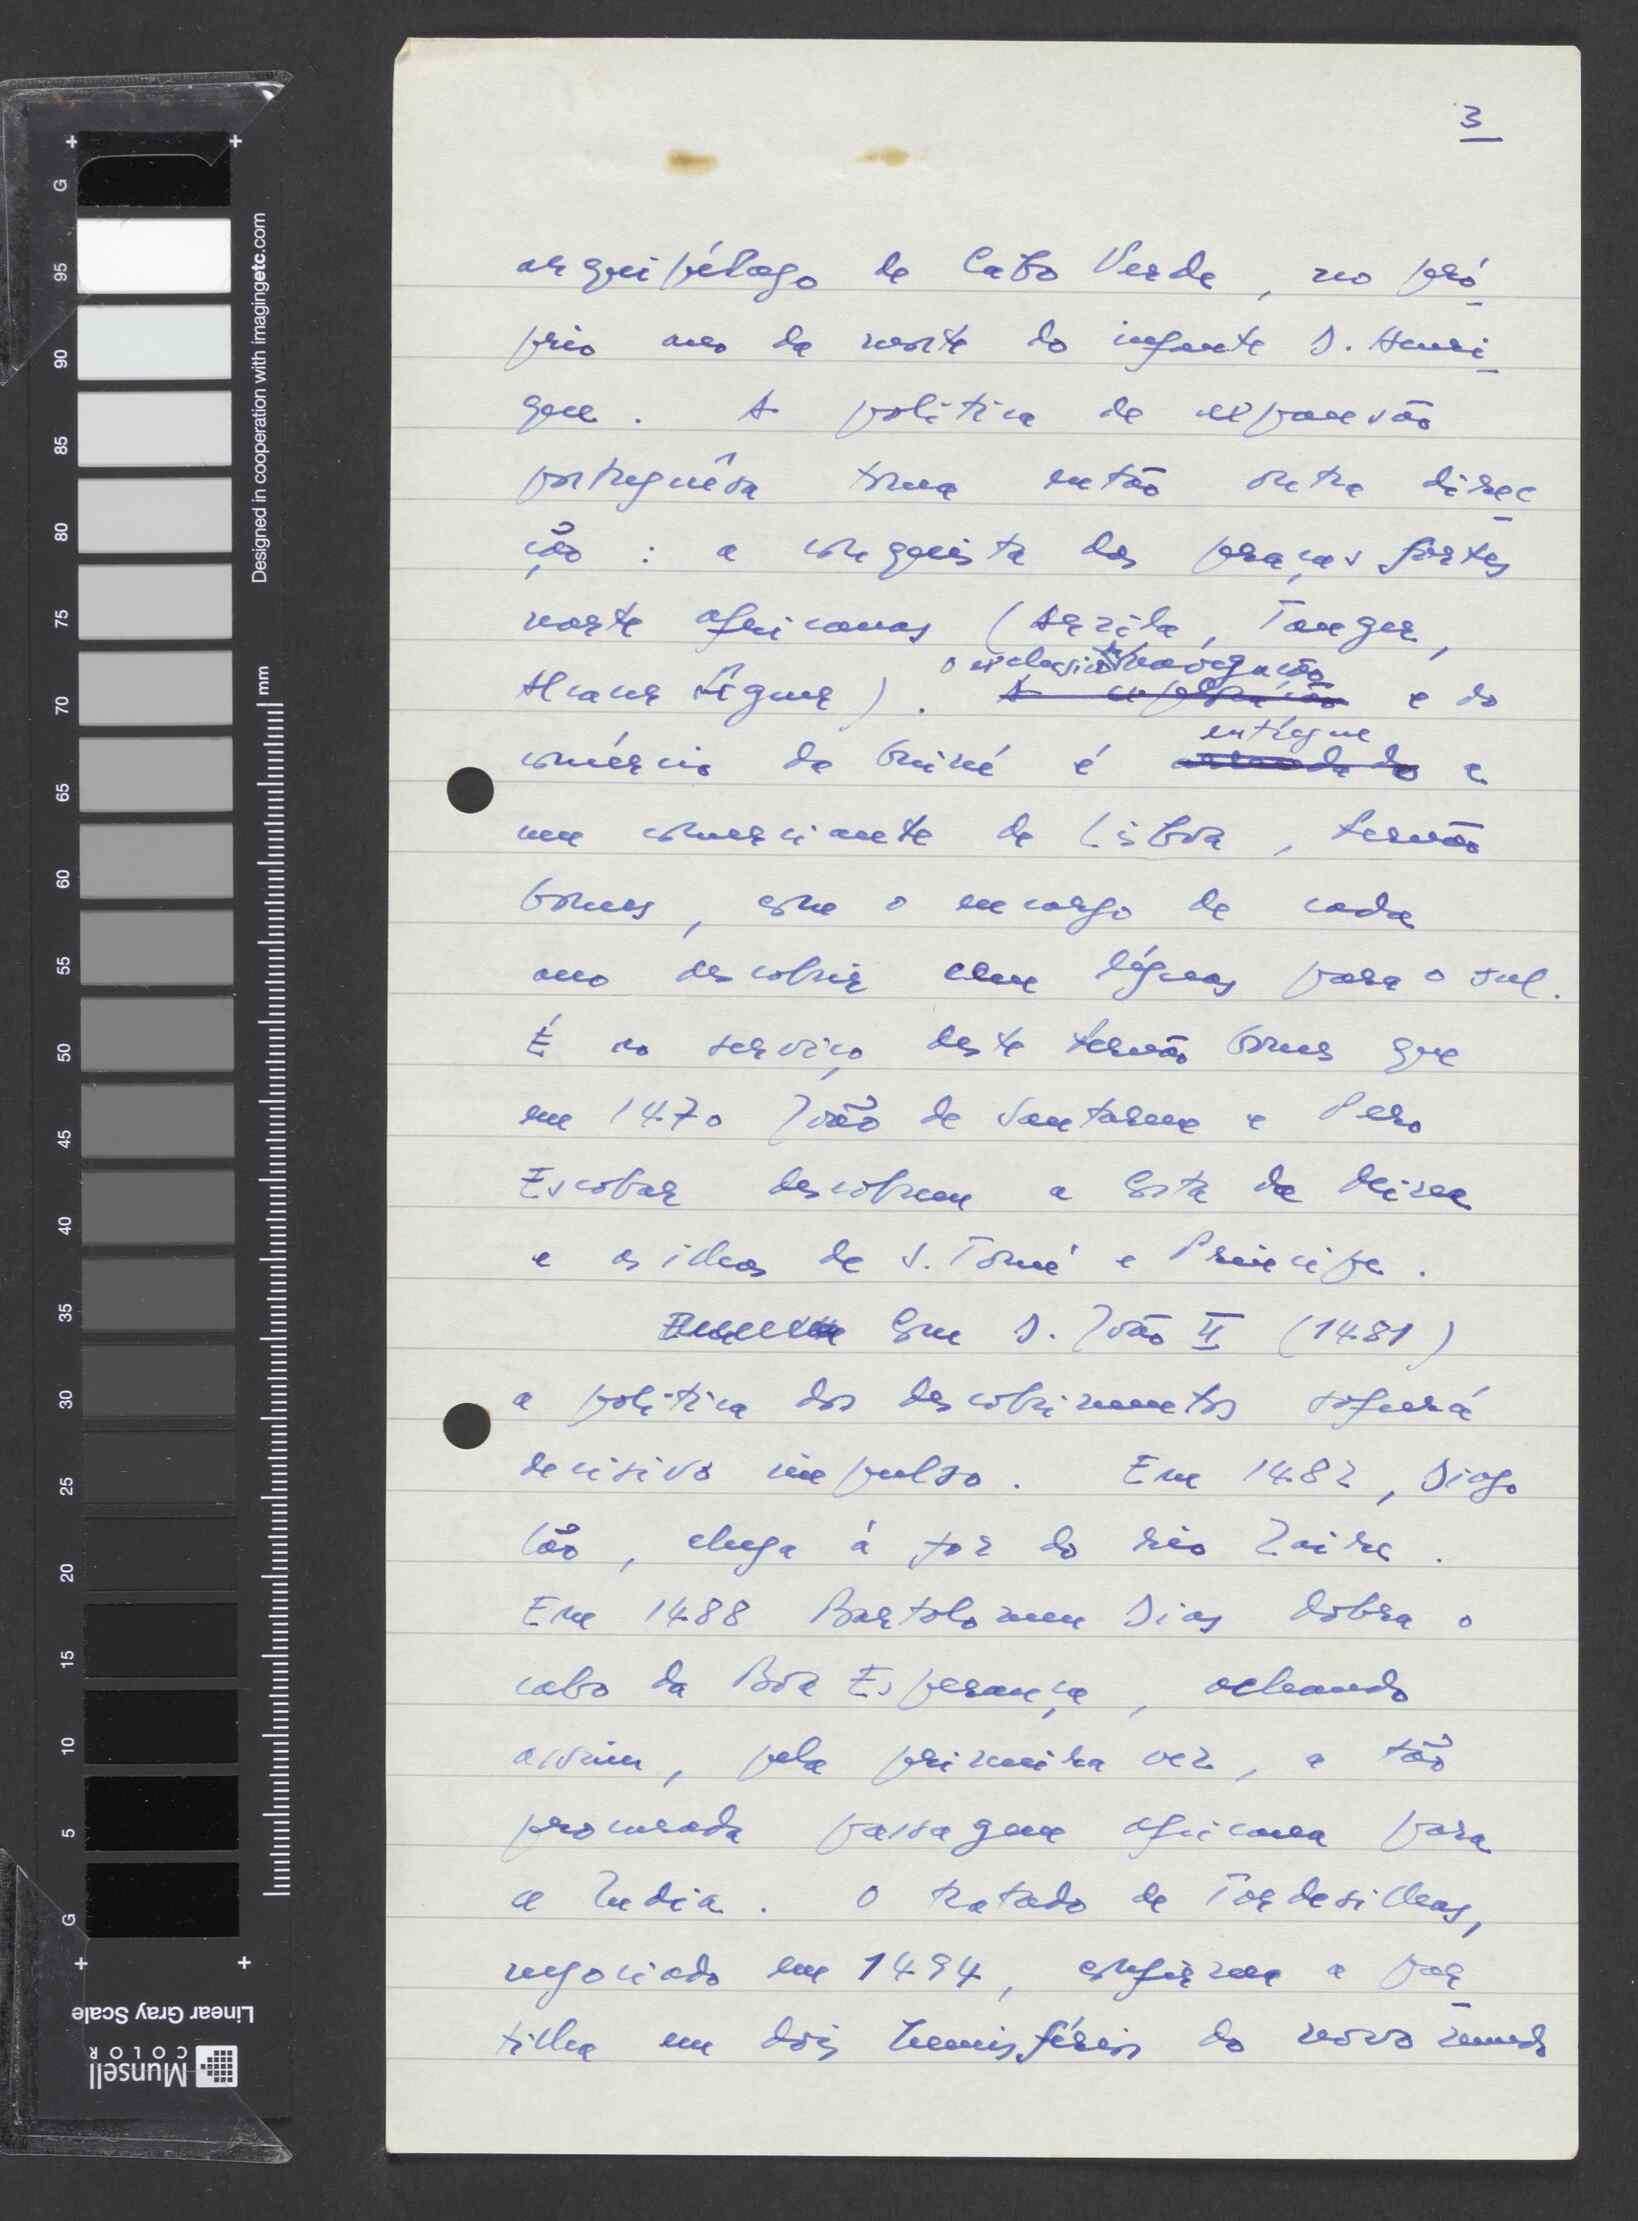 3
arquipélago de Cabo Verde, no pró-
prio ano da morte do infante D. Henri-
que. A política de expansão
portuguêsa toma então outra direc-
ção: a conquista das praças fortes
norte africanas (Arzila, Tanger,
Alcacer Séguer). o exclusivo da navegação e do
comércio da Guiné é entregue a
um comerciante de Lisboa, Fernão
Gomes, com o encargo de cada
ano descobrir cem léguas para o sul.
É ao serviço deste Fernão Gomes que
em 1470 João de Santarem e Pero
Escobar descobrem a Costa da Mina
e as ilhas de S. Tomé e Principe.
Com D. João II (1481)
a política dos descobrimentos sofrerá
decisivo impulso. Em 1482, Diogo
Cão, chega à foz do rio Zaire.
Em 1488 Bartolomeu Dias dobra o
cabo da Boa Esperança, achando
assim, pela primeira vez, a tão
procurada passagem africana para
a India. O tratado de Tordesilhas,
negociado em 1494, confirma a par-
tilha em dois hemisférios do novo mundo
Designed in cooperation with imagingetc.com
mm
G
95
90
85
80
75
70
65
60
55
50
45
40
35
30
25
20
15
10
5
G
Linear Gray Scale
Munsell
COLOR